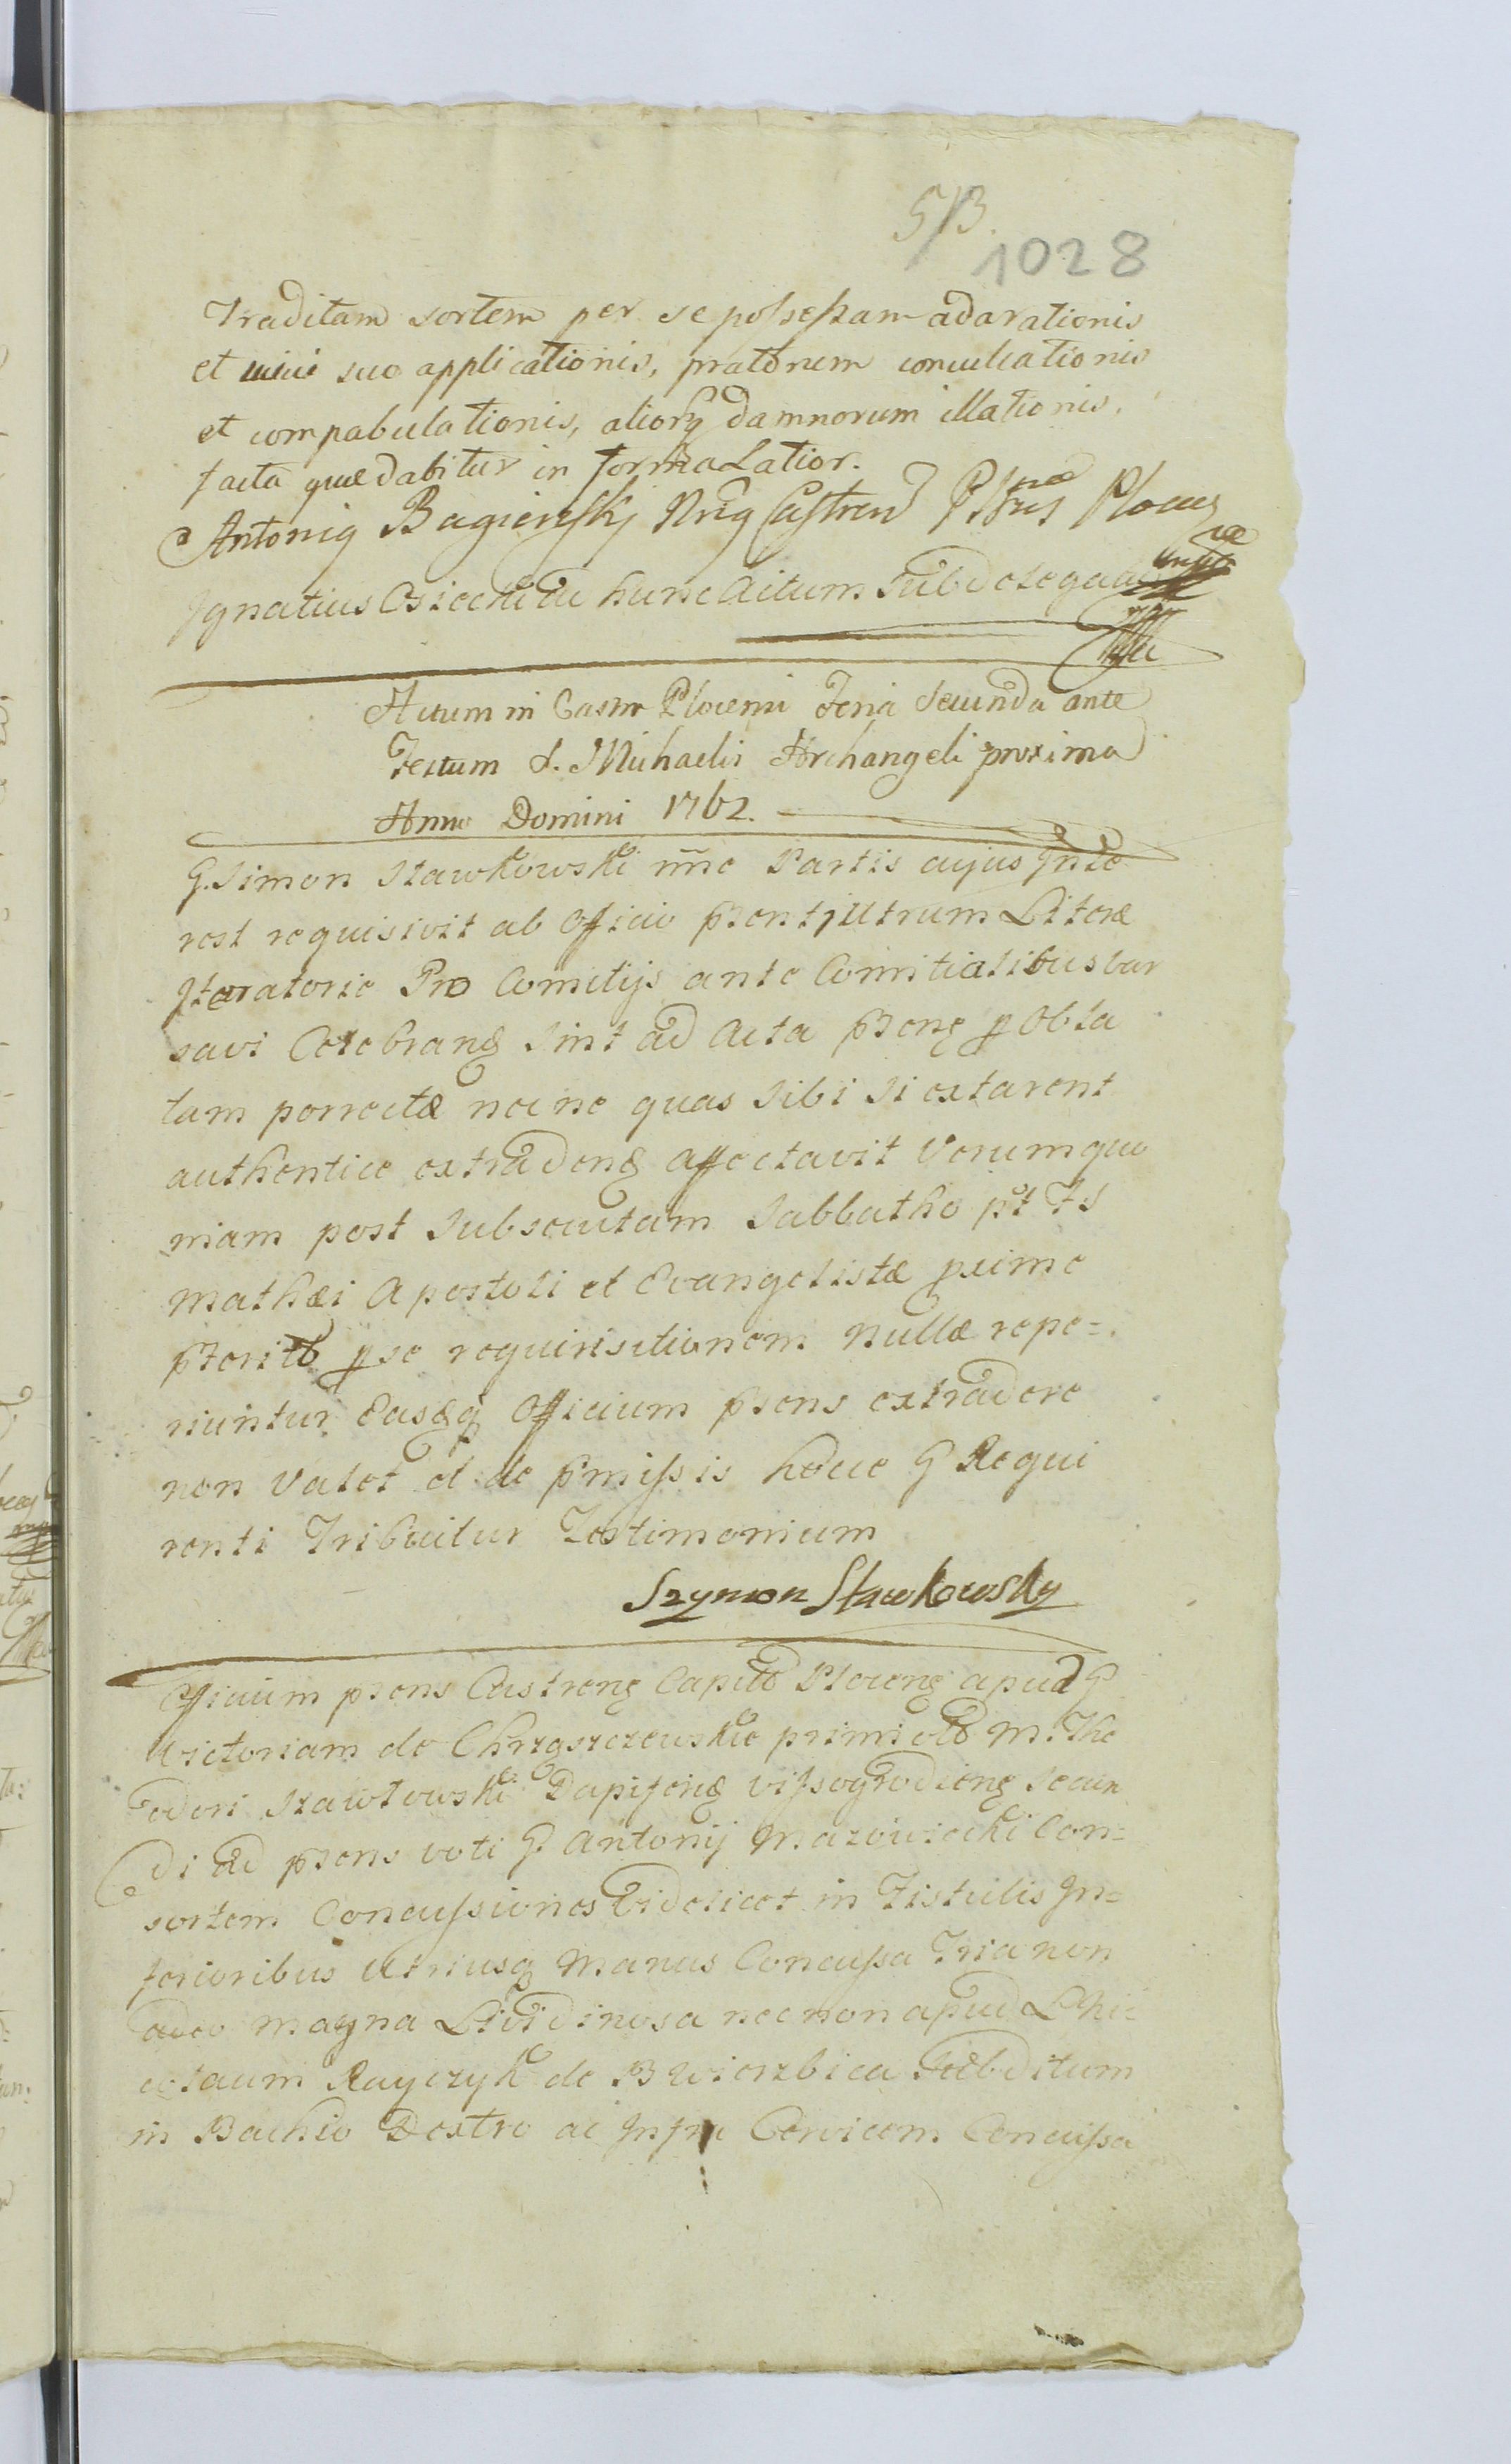 513.
1028
Traditam sortem per se possessam adarationis
et usui suo applicationis, pratorum conculcationis
et compabulationis, aliorq damnorum illationis.
facta quæ dabitur in forma Latior.
Antonig Bagienskj Nrig Castren Plocen
Ignatius Osiecki ad hunc Actum Subdelegatus
Actum in Castro Plocensi Feria Secunda ante
Festum S. Michaelis Archangeli proxima
Anno Domini 1762.
G. Simon Sławkowski nne Partis cujus Inte
rest requisivit ab Officio psenti Utrum Literæ
Iteratorie Pro Comitijs ante Comitialibus var
savi Celebrand Sint ad Acta psens p Obla
tam porrectæ nec ne quas Sibi Si extarent
authentice extradend affectavit Verum quo
niam post Subsecutam Sabbatho pt Fs
Mathæi Apostoli et Evangelistæ pximo
pterito p se requirisitionem Nullæ repe=
riuntur Easqq Officium psens extradere
non Valet et de pmissis hocce G Requi
renti Tribuitur Testimonium
Szymon Sławkowsky
Officium psens Castrens Capitd Plocens apud G
Victoriam de Chrząszczewskie primi olb M. The
odori Szawłowski Dapiferid vissogrodiens Secun
di ad psens voti G. Antonij Mazowiecki Con=
sortem Concussiones Videlicet in Fistulis In=
ferioribus Utriusq Manus Concussa Tria non
adeo magna Lividinosa nec non apud
Rayczyk de Wierzbica Subditum
in Bachio Dextro ac Infra Cervicem Concussa